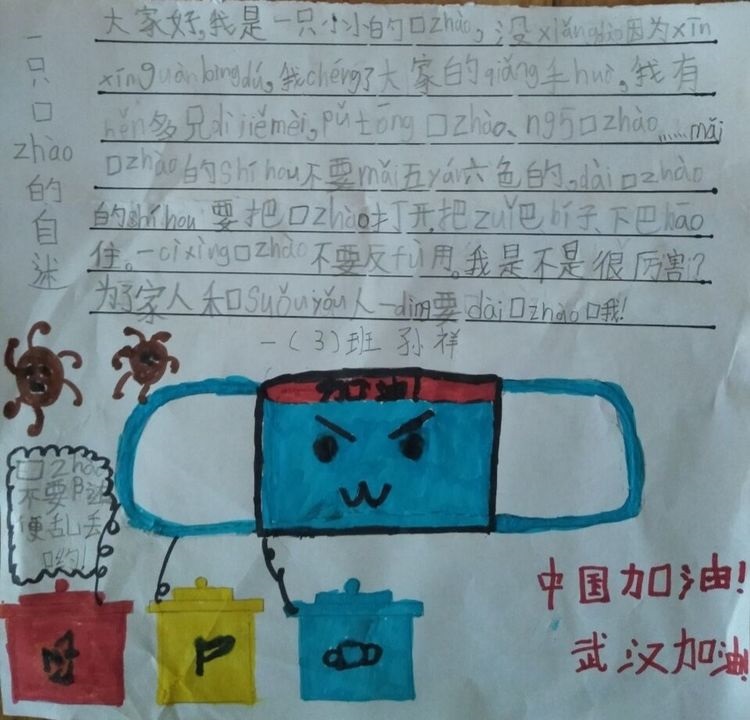 一只口zhào的自述
大家好,我是一只小小的口zhào,没xiǎngdào因为xīn
xīngguànbìngdú,我chéng了大家的qiǎng手huò,我有
hěn多兄dìjiěmèi,pǔtōng口zhào、n95口zhào……mǎi
口zhào的shíhou不要mǎi五yán六色的,dài口zhào
的shíhou要把口zhào打开,把zuǐ巴bí子、下巴bāo
住。一cìxìng口zhào不要反fù用。我是不是很厉害?
为了家人和suǒuyǒu人一dìng要dài口zhào哦!
一(3)班孙祥
加油!
口zhào
不要随
便乱丢
哟!
中国加油!
武汉加油!